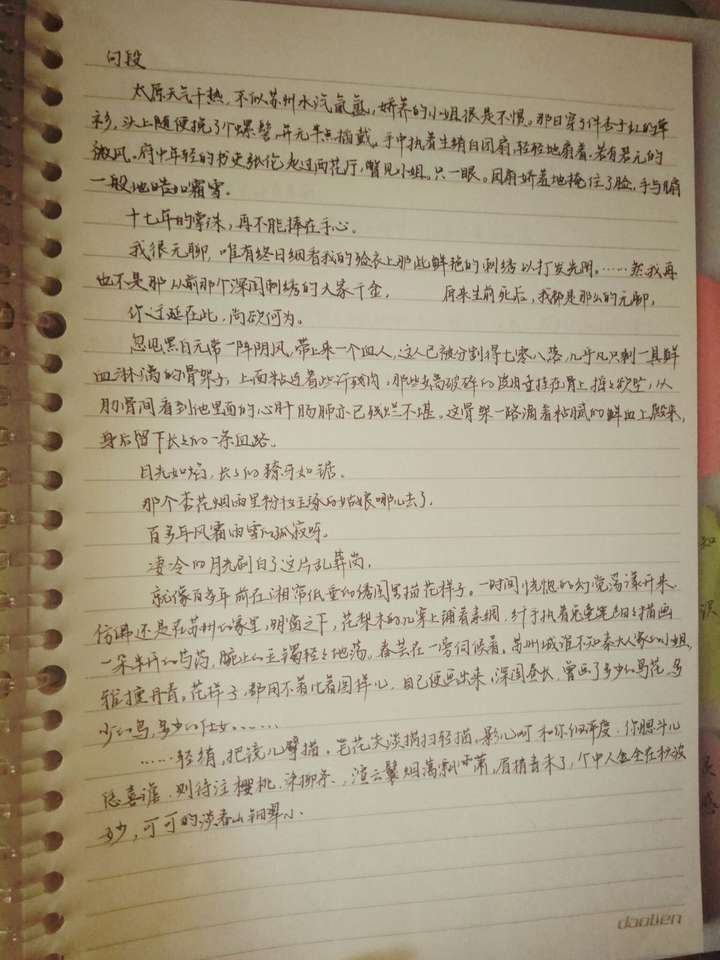 问段
太原天气干热,不似苏州水汽氤氲,娇养的小姐很是不惯。那日穿了件杏子红的单
衫,头上随便挽了个螺髻,并无半点插戴。手中执着生绡白团扇,轻轻地扇着若有若无的
微风。府中年轻的书吏张伦走过西花厅,瞥见小姐。只一眼。团扇娇羞地掩住了脸,手与扇
一般地皓如霜雪。
十七年的掌珠,再不能捧在手心。
我很无聊,唯有终日细看我的殓衣上那些鲜艳的刺绣以打发光阴。……然我再
也不是那从前那个深闺刺绣的大家千金。 原来生前死后,我都是那么的无聊,
你过延在此,尚欲何为。
忽见黑白无常一阵阴风,带上来一个血人,这人已被分割得七零八落,几乎只剩一具鲜
血淋漓的骨架子,上面粘连着些许残肉,那些破碎的皮肉垂挂在骨上摇摇欲坠,从
肋骨间看到他里面的心肝肠肺亦已残烂不堪。这骨架一路滴着粘腻的鲜血上殿来,
身后留下长长的一条血路。
目光如焰,长长的獠牙如锯。
那个杏花烟雨里粉妆玉琢的姑娘哪儿去了。
百多年风霜雨雪的孤寂呀。
凄冷的月光刷白了这片乱葬岗,
就像百多年前在湘帘低垂的绣阁里描花样子。一时间恍惚的幻觉荡漾开来。
仿佛还是在苏州的家里,明窗之下,花梨木的几案上铺着素绢,纤手执着兔毫笔细细描画
一朵半开的芍药,腕上的玉镯轻轻地荡。春芸在一旁伺候着,苏州城谁不知秦大人家的小姐
雅擅丹青。花样子都用不着比着图样儿,自己便画出来,深闺昼长,曾画了多少的鸟花,多
少的鸟,多少的仕女。……
……轻绡,把镜儿擘描。笔花尖淡描扫轻描。影儿呵和你细评度,你腮斗儿
恁喜谑,则待注樱桃,染柳条,渲云鬟烟霭飘萧,眉梢青未了,个中人全在秋波
妙,可可的淡春山钿翠小.
daolien
知
识
灵
感